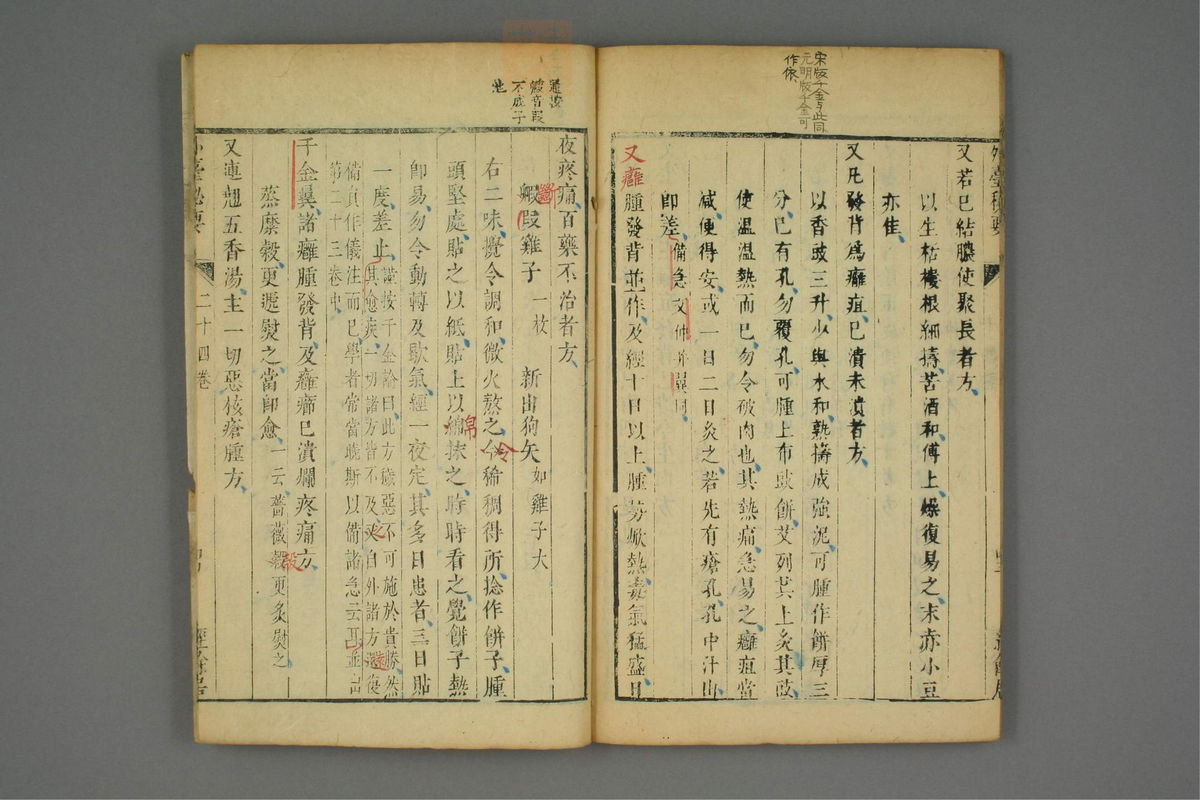 宋版千金与此同
元明版千金可
作傚
又若已結膿使聚長者方
以生栝樓根細擣苦酒和傅上燥復易之末赤小豆
亦佳
又凡發背為癰疽已潰未潰者方
以香豉三升少與水和熟擣成強泥可腫作餅厚三
分已有孔勿覆孔可腫上布豉餅艾列其上灸其豉
使溫溫熱而已勿令破肉也其熱痛急易之癰疽當
減便得安或一日二日灸之若先有瘡孔孔中汁出
即差 備急文仲 翼同
又癰腫發背並作及經十日以上腫 焮熱毒氣猛盛日
夜疼痛百藥不治者方
毈 雞子一枚 新出狗矢如雞子大
右二味攪令調和微火熬之令稀稠得所捻作餅子腫
頭堅處貼之以紙貼上以綿抹之時時看之覺餅子熱
即易勿令動轉及歇氣經一夜定其多日患者三日貼
一度差止 謹按千金論曰此方穢惡不可施於貴勝然
其愈疾一切諸方皆不及之自外諸方還復
備員作儀注而已學者常當曉斯以備諸急云 並出
第二十三卷中
千金翼諸癰腫發背及癰癤已潰爛疼痛方
蒸糜穀更遞熨之當即愈 一云薔薇殼更炙熨之
又連翹五香湯主一切惡核瘡腫方
外臺秘要
二十四卷